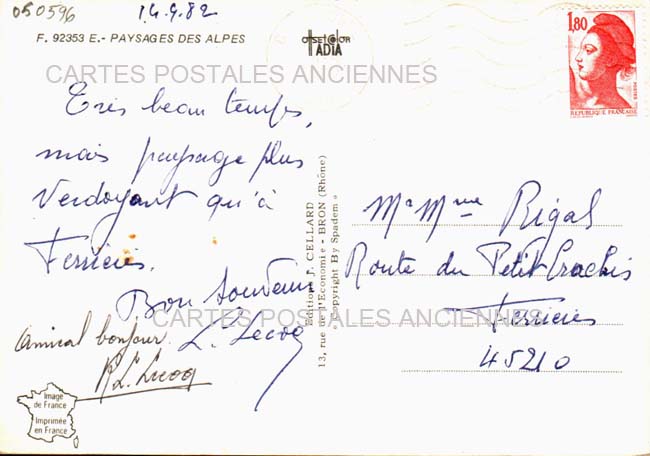 050596
14.9.82
F. 92353 E.- PAYSAGES DES ALPES
OFFSET COLOR
IADIA
1,80
POSTES
REPUBLIQUE FRANÇAISE
CARTES POSTALES ANCIENNES
Très beau temps,
mais paysage plus
verdoyant qu'à
Ferrières.
Bon souvenir
L. Lecoq
Amical bonjour.
R. L. Lecoq
Editions J. CELLARD
13, rue l'Economie - BRON (Rhône)
Copyright By Spadem
Mr Mme Rigal
Route du Petit Crachis
Ferrières
45210
CARTES POSTALES ANCIENNES
Image
de France
Imprimée
en France